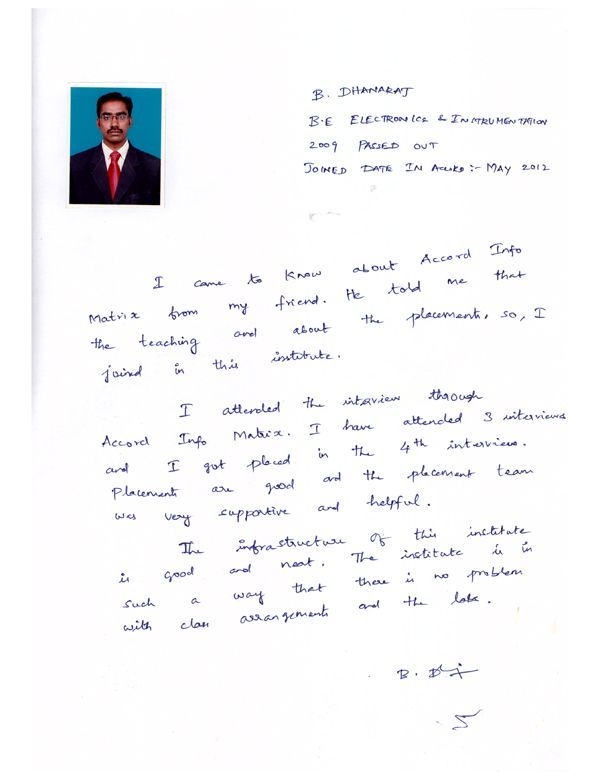 B. DHANARAJ
B.E ELECTRONICS & INSTRUMENTATION
2009 PASSED OUT
JOINED DATE IN :- MAY 2012
I came to know about Accord Info
Matrix from my friend. He told me that
the teaching and about the placements, so, I
joined in this institute.
I attended the interview through
Accord Info Matrix. I have attended 3 interviews
and I got placed in the 4th interview.
Placements are good and the placement team
was very supportive and helpful.
The infrastructure of this institute
is good and neat. The institute is in
such a way that there is no problem
with class arrangements and the labs.
B.